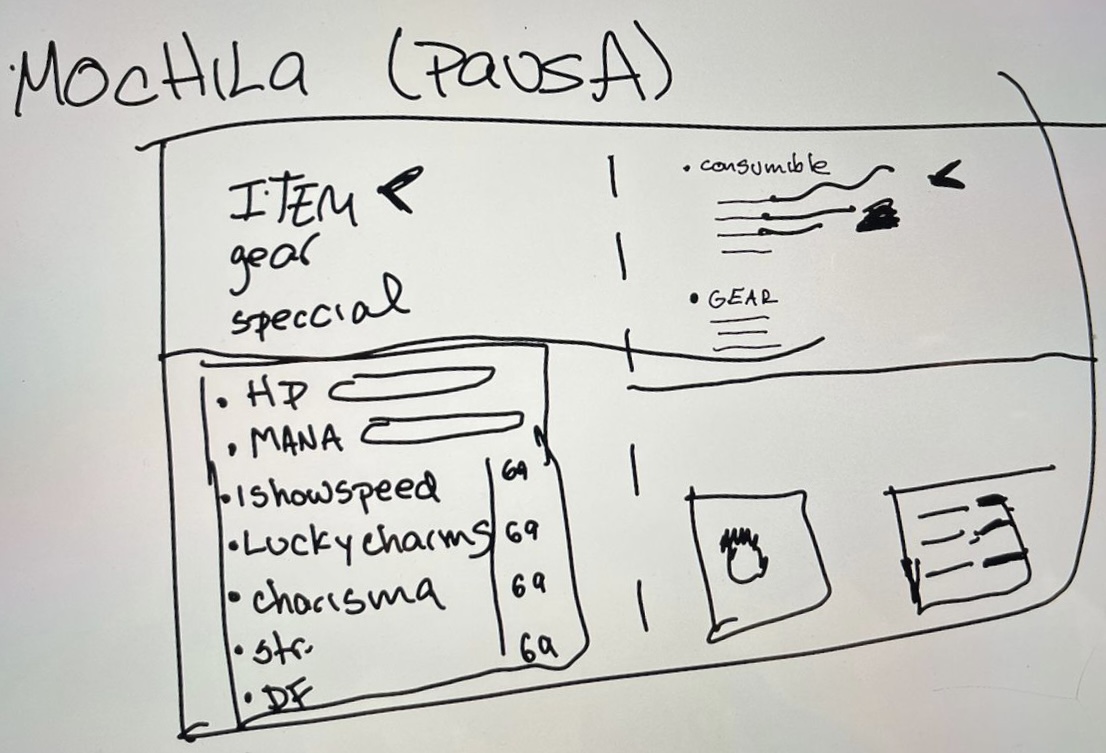 MOCHILA (PAUSA)
ITEM
gear
speccial
• consumible
• GEAR
• HP
• MANA
• ishowspeed 69
• Lucky charms 69
• charisma 69
• str. 69
• DF